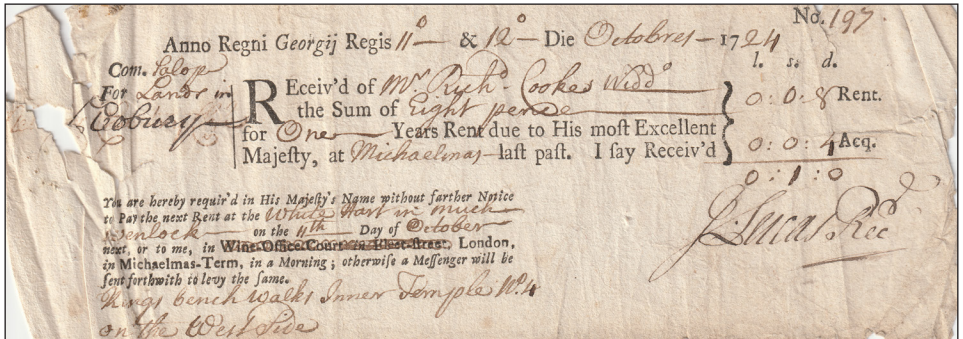 No. 197.
Anno Regni Georgij Regis 11o & 12o Die Octobres 1724
l. s. d.
Com. Salop
For Lands in
Eobury
REceiv'd of Mr. Richd. Cookes Widdo
the Sum of Eight pence
for One Years Rent due to His most Excellent
Majesty, at Michaelmas last past. I say Receiv'd
0 : 0 : 8 Rent.
0 : 0 : 4 Acq.
0 : 1 : 0
J: Lucas Recr
You are hereby requir'd in His Majesty's Name without farther Notice
to Pay the next Rent at the White Hart in much
Wenlock on the 4th Day of October
next, or to me, in Wine-Office-Court in Fleet-street, London,
in Michaelmas-Term, in a Morning; otherwise a Messenger will be
sent forthwith to levy the same.
Kings bench Walks Inner Temple No. 4
on the West Side